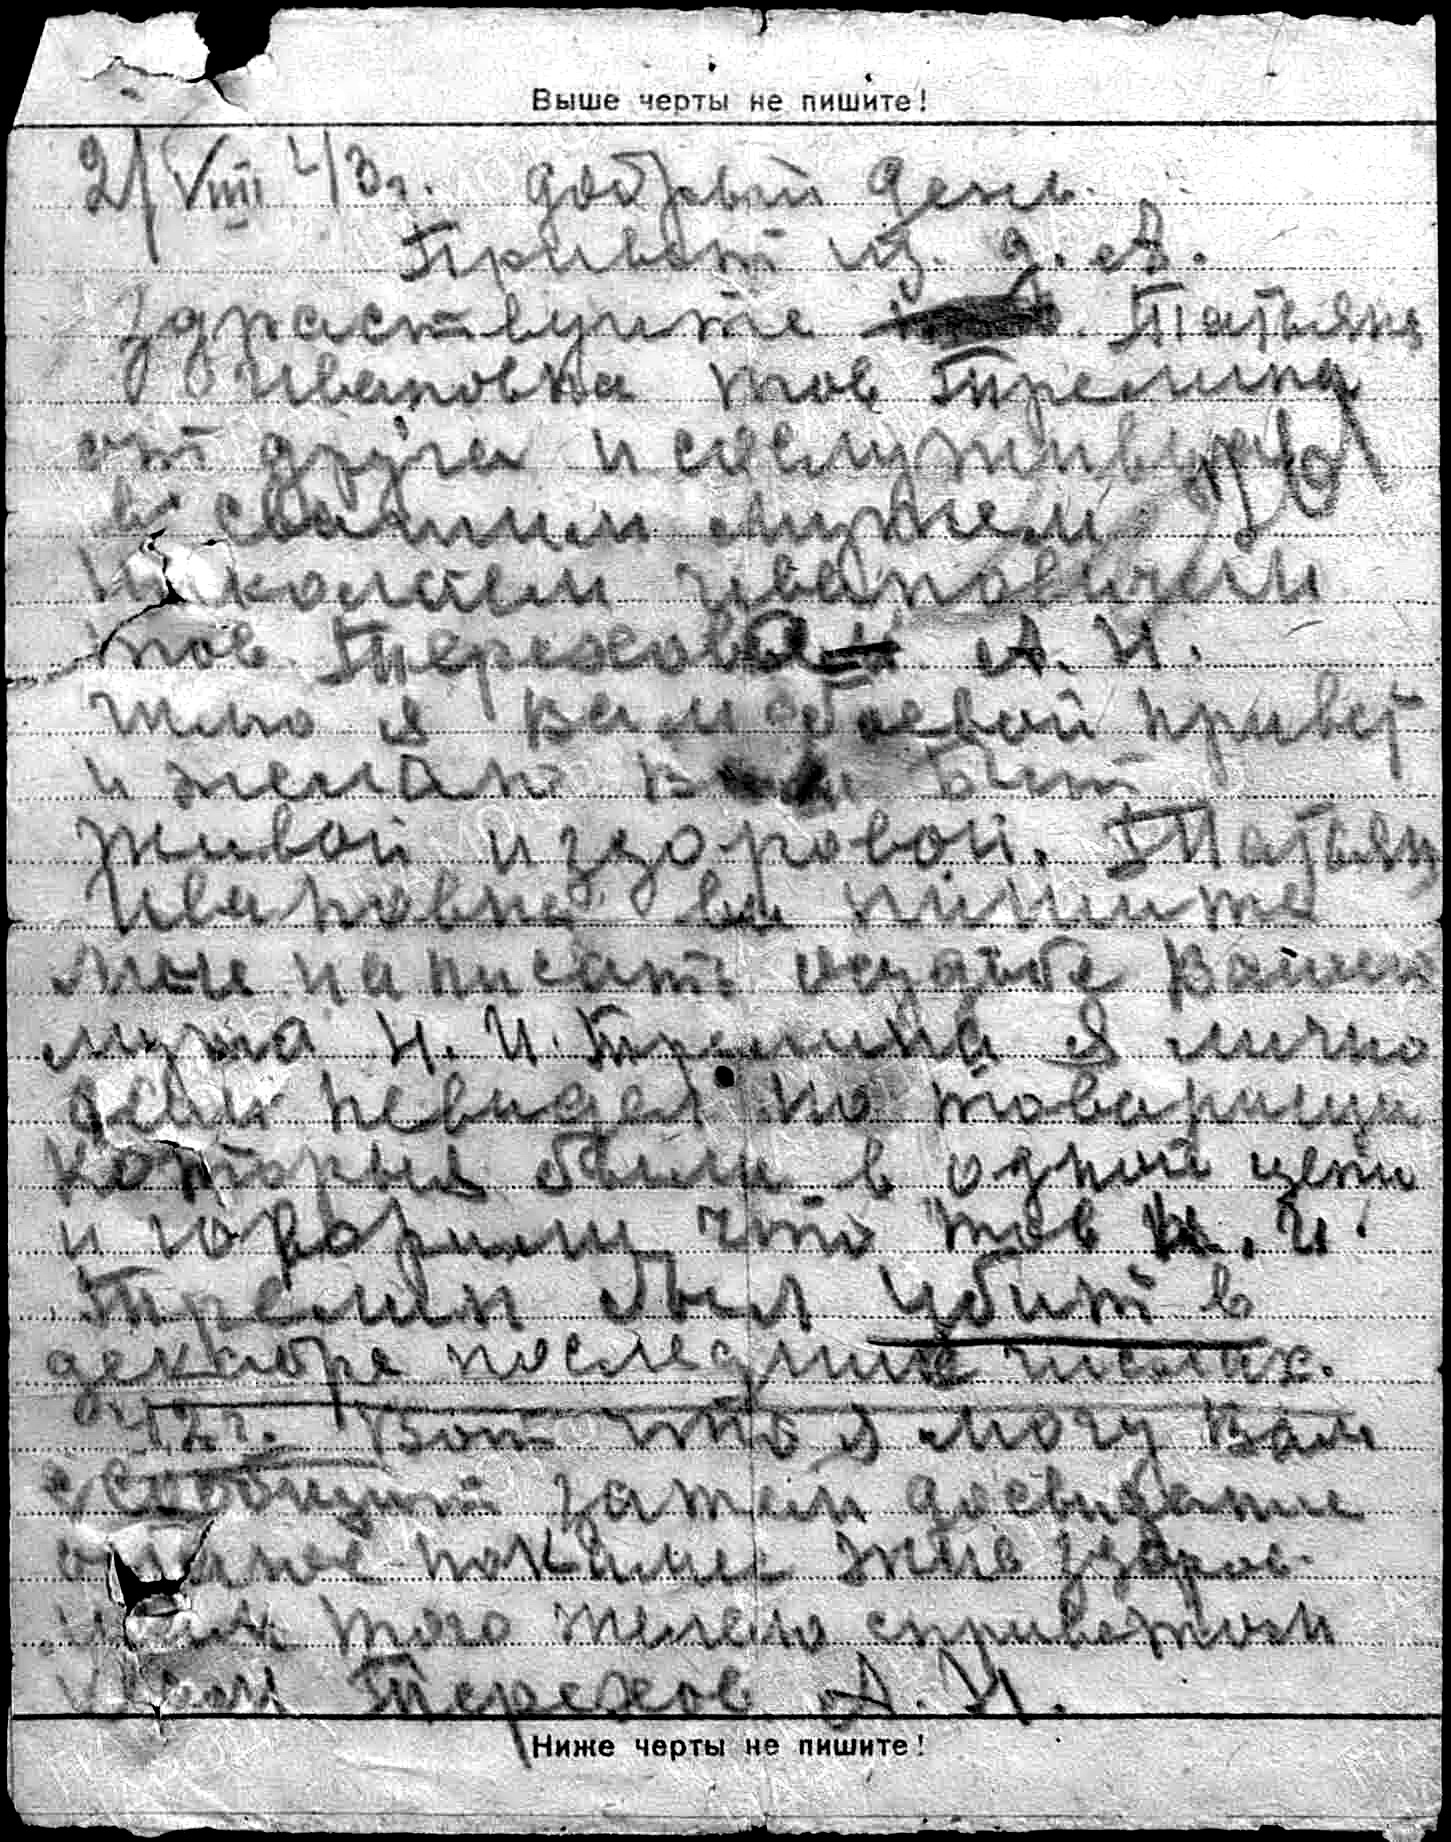 Выше черты не пишите!
21 VIII 43г. добрый день.
Привет из д. А.
Здраствуите Татьяна
Ивановна тов Тремина
от друга и сослуживца
в свашим мужем
Николаем ивановичем
тов. Терехова А. И.
шлю я вам боевой привет
и желаю Вам быт
живой и здоровой. Татьяна
Ивановна вы пишите
мне написат осудьбе Вашего
мужа Н. И. Тремина я лично
сам невидел но товарищи
которые были в одной цепи
и говорили что тов Н. И.
Тремин был убит в
декабре последних числах.
42г. Вот что я могу Вам
сообщит затем досвидание
жив здоров
того желею сприветом
к вам Терехов А. И.
Ниже черты не пишите!